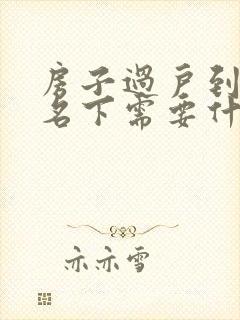 房子过户到
名下需要什
亦亦雪